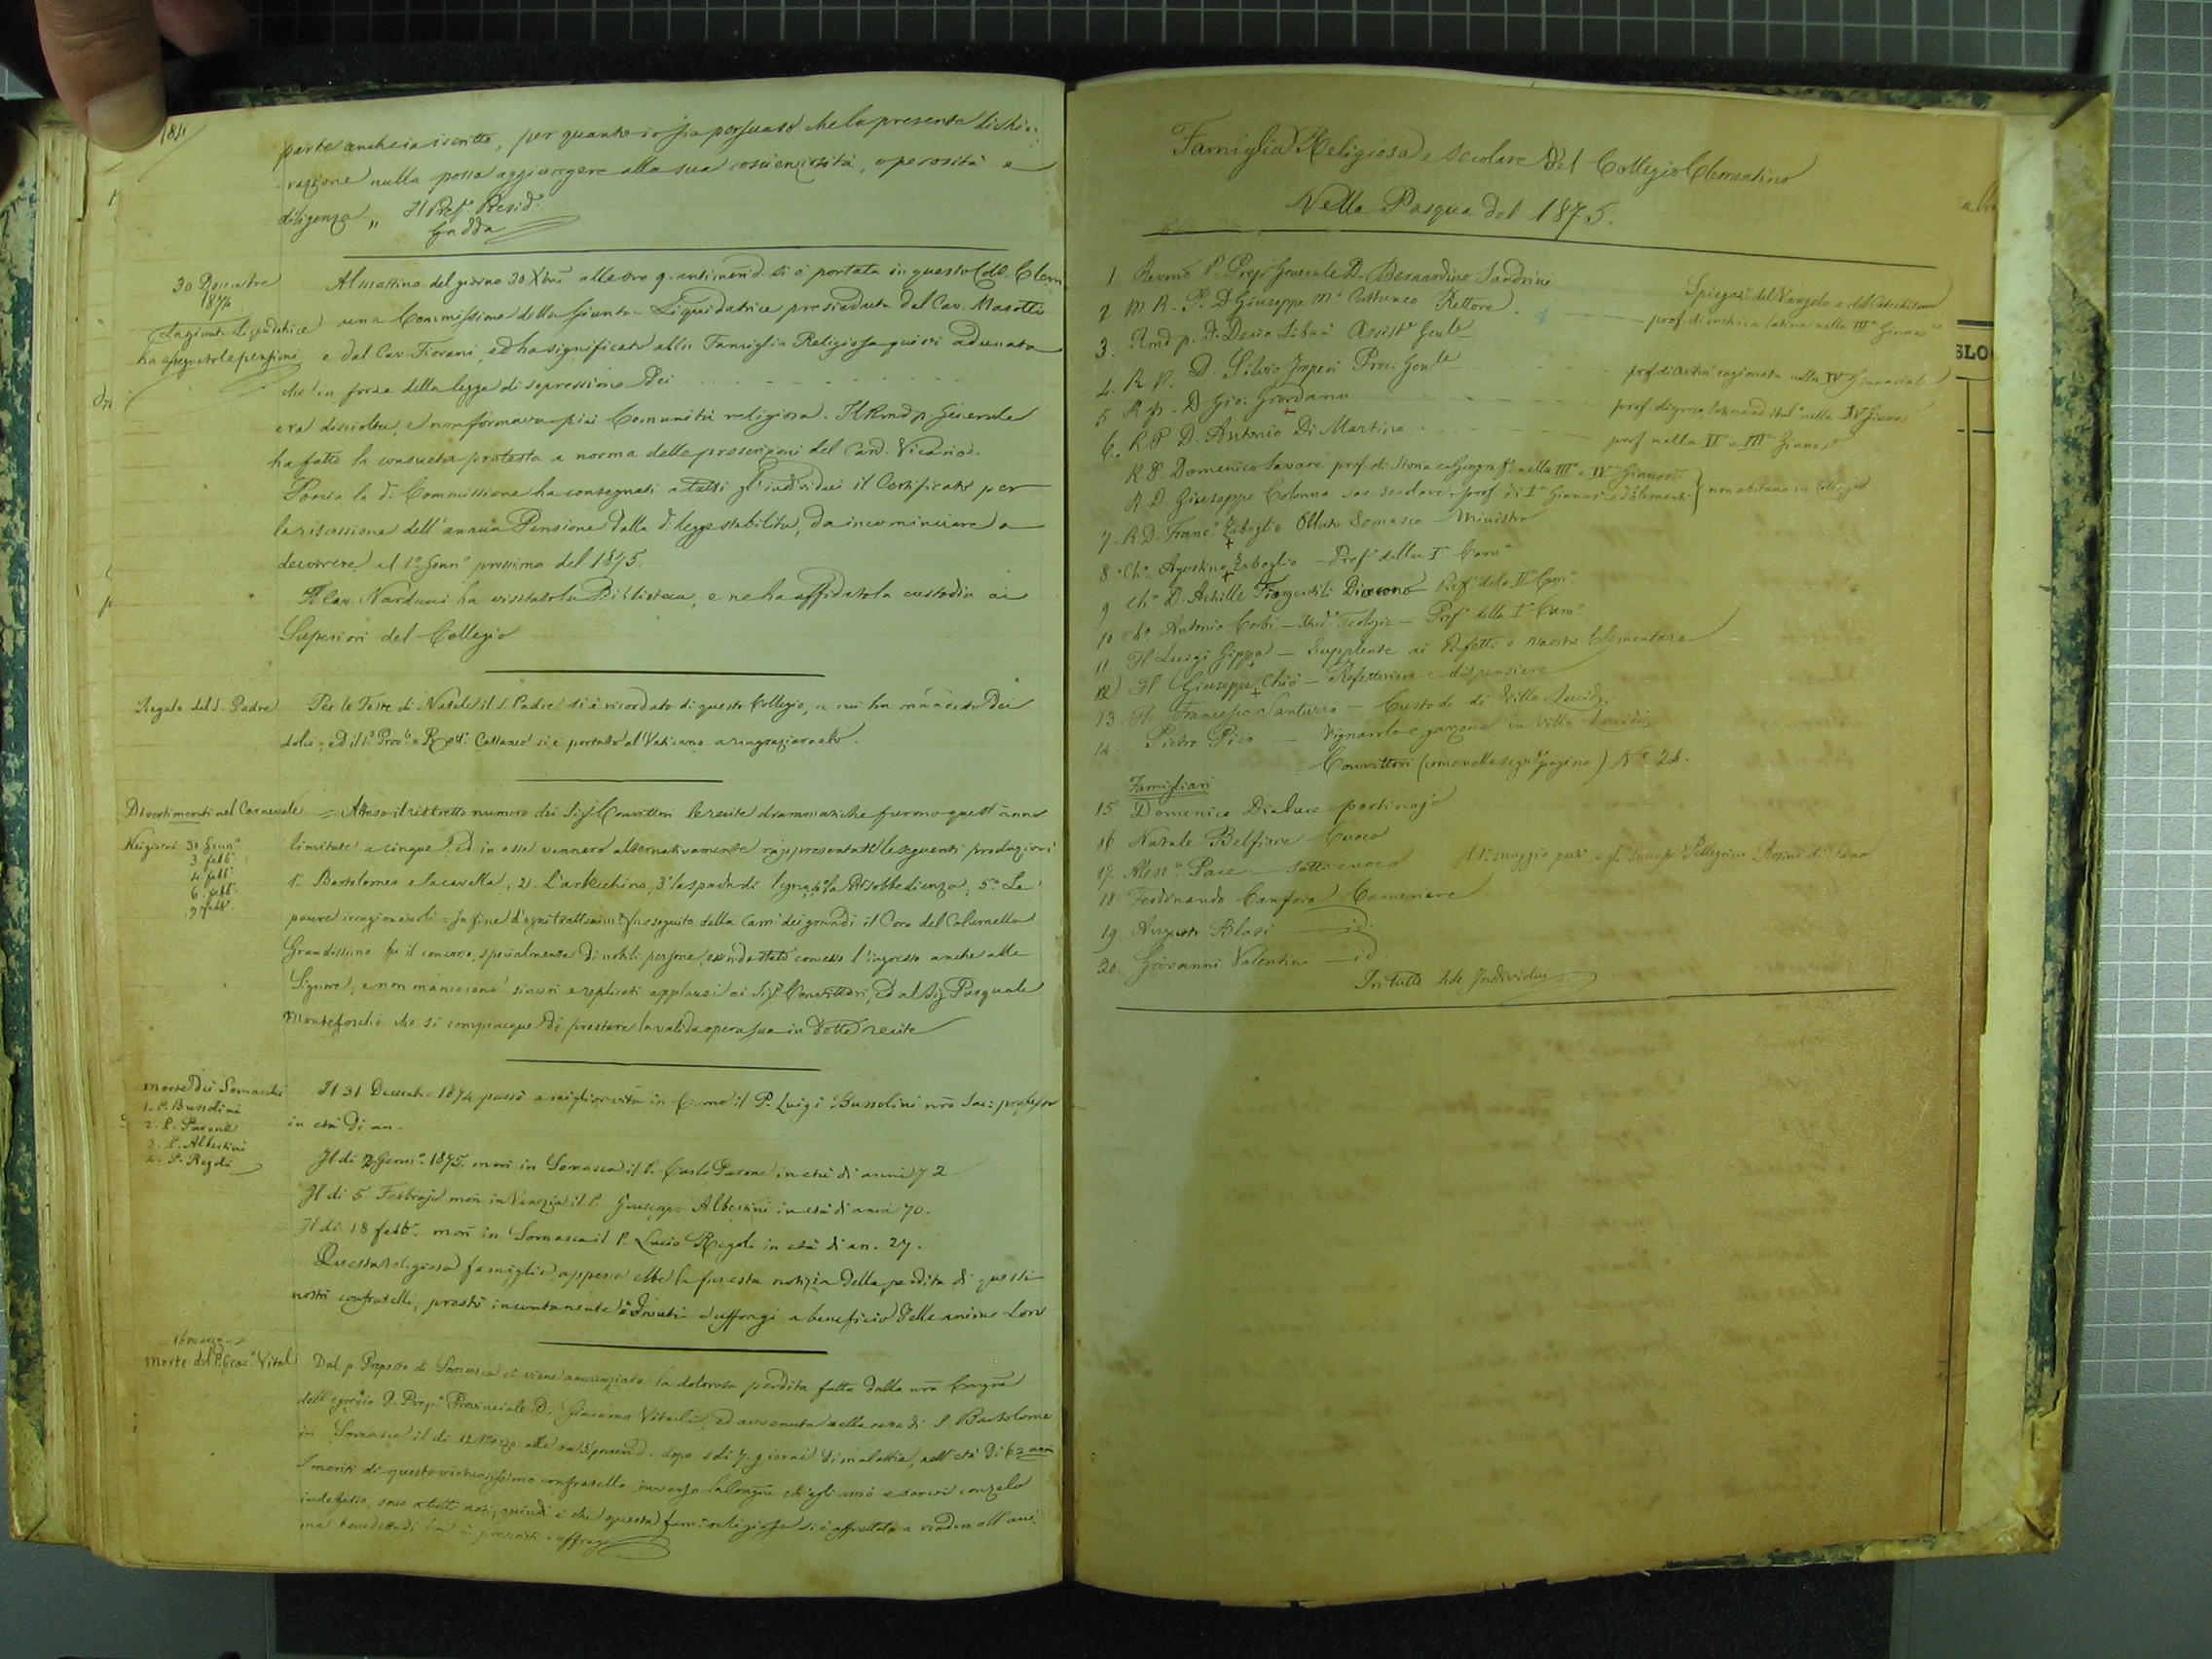 184
parte anch'essa iscritto, per quanto io sia persuaso che la presente dichia-
razione nulla possa aggiungere alla sua coscienziosità, operosità e
diligenza „ Il Pref. Presid.
Gadda
30 Decembre
1874
La giunta Liquidatrice
ha assegnato le pensioni
Al mattino del giorno 30 Xbre alle ore 9. antimerid. si è portata in questo Coll. Clem
una Commissione della Giunta Liquidatrice presieduta dal Cav. Masotti
e dal Cav. Fiorani, ed ha significato alla Famiglia Religiosa quivi adunata
che in forza della legge di sopressione dei
era disciolta, e non formava più Comunità religiosa. Il Rmo p. Generale
ha fatto la consueta protesta a norma delle prescrizioni del Card. Vicario.
Poscia la d. Commissione ha consegnati a tutti gl'individui il Certificato per
la riscossione dell'annua Pensione dalla d. legge stabilita, da incominciare a
decorrere al 1° Genn° prossimo del 1875.
Il Cav. Narducci ha visitato la Biblioteca, e ne ha affidato la custodia ai
Superiori del Collegio
Regalo del S. Padre
Per le Feste di Natale il S. Padre si è ricordato di questo Collegio, a cui ha mandato dei
dolci, ed il P. Proc. e Rett. Cattaneo si è portato al Vaticano a ringraziarnelo.
Divertimenti nel Carnevale
Nei giorni 30 Genn°
3 febb°
4 febb°
6 febb°
9 febb°
= Atteso il ristretto numero dei Sigi Convittori le recite drammatiche furono quest'anno
limitate a cinque, ed in esse vennero alternativamente rappresentate le seguenti produzioni
1. Bartolomeo e la cavalla, 2. L'arlecchino, 3° la spada di legno, 4° la Disobbedienza, 5° Le
paure irragionevoli = In fine d'ogni trattenim. fu eseguito dalla Cam. dei grandi il Coro del Colonnello
Grandissimo fu il concorso, specialmente di nobili persone, essendo stato concesso l'ingresso anche alle
Signore, e non mancarono sinceri e replicati applausi ai Sigi Convittori, ed al Sig. Pasquale
Monteforchio che si compiacque di prestare la valida opera sua in dette recite
Morte dei Somaschi
1. P. Bussolini
2. P. Parone
3. P. Albertini
4. P. Regoli
Il 31 Decembre 1874 passò a miglior vita in Como il P. Luigi Bussolini nro Sac: professo
in età di an.
Il di 2 Genn° 1875. morì in Somasca il P. Carlo Parone in età di anni 72
Il di 5 Febbrajo morì in Venezia il P. Giuseppe Albertini in età di anni 70.
Il di 18 febb. morì in Somasca il P. Lucio Regoli in età di an. 27.
Questa religiosa famiglia appena ebbe la funesta notizia della perdita di questi
nostri confratelli, prestò incontanente i dovuti suffragi a beneficio delle anime loro
16 marzo
Morte del P. Giac° Vitali
Dal p. Preposto di Somasca ci viene annunziata la dolorosa perdita fatta dalla nra Congne
dell'egregio P. Prep° Provinciale D. Giacomo Vitali, ed avvenuta nella casa di S. Bartolomeo
in Somasca il di 12 Marzo alle ore 5 pomerid. dopo soli 7. giorni di malattia, nell'età di 62 anni
I meriti di questo virtuosissimo confratello inverso la Congne ch'egli amò e servì con zelo
indefesso, sono a tutti noti, quindi è che questa fami religiosa si è affrettata a render all'ani-
ma benedetta di lui i prescritti suffragi
Famiglia Religiosa e Secolare del Collegio Clementino
Nella Pasqua del 1875.
1 Revmo P. Prep. Generale D. Bernardino Sandrini
2 M R. P. D Giuseppe Ma Cattaneo Rettore. Spiegaz. del Vangelo e del Catechismo
prof. di metrica latina nella IIIa Ginnas.
3. Rmd p. D. Decio Libois Assiste Gente
4. R P. D. Silvio Imperi Proc: Gente
5. R p. D Gio: Giordano prof. di Aritm. ragionata nella IV Ginnasiale
6. R. P. D. Antonio Di Martino prof. di greco, latino ed ital° nella IV Ginna
prof. nella II e III Ginnas.
R. D. Domenico Savarè prof. di Storia e Geograf. nella III e IV Ginnas.
R. D Giuseppe Colonna sac. secolare prof. di Ia Ginnas. ed Element. } non abitano in Collegio
7. R D. Franc° Zabaglio Oblato Somasco - Ministro
8 Ch° Agostino Zabaglio - Pref. della Ia Cam
9 Ch° D. Achille Fiorgentili Diacono Pref. della IIa Cam
10. Ch° Antonio Corbi - Stud. Teologia - Pref. della Ia Cam
11. Fl Luigi Gippa - Supplente ai Prefetti e maestro Elementare
12) Fl Giuseppe Chiò - Refettoriere e dispensiere
13. Fl Francesco Santurro - Custode di Villa Lucidi
14. Pietro Pico - Vignarolo e garzone in Villa Lucidi
= Convittori (come nella segu. pagina) N° 24.
Famigliari
15 Domenico Dialuce portinajo
16 Natale Belfiore Cuoco
17. Aless° Pace - Sotto cuoco Il 1° maggio partì e gli succ. Pellegrino Rosini di Fano
18 Ferdinando Canfora Cameriere
19 Augusto Blasi - id.
20 Giovanni Valentini - id.
In tutto 44 Individui